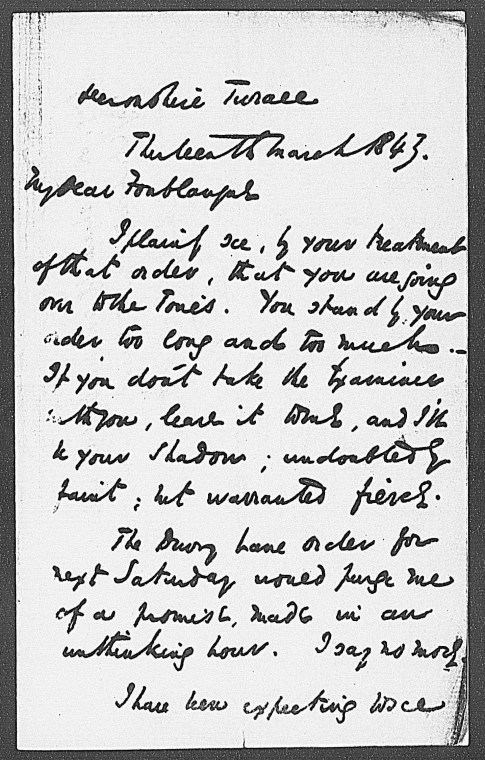 Devonshire Terrace
Thirteenth March 1843.
My Dear Fonblanque
I plainly see, by your treatment
of that order, that you are going
over to the Tories. You stand by your
order too long and too much. —
If you don't take the Examiner
with you, leave it to me, and I'll
be your Shadow; undoubtedly
faint; but warranted fierce.
The Drury Lane order for
next Saturday would purge me
of a promise, made in an
unthinking hour. I say no more.
I have been expecting to see